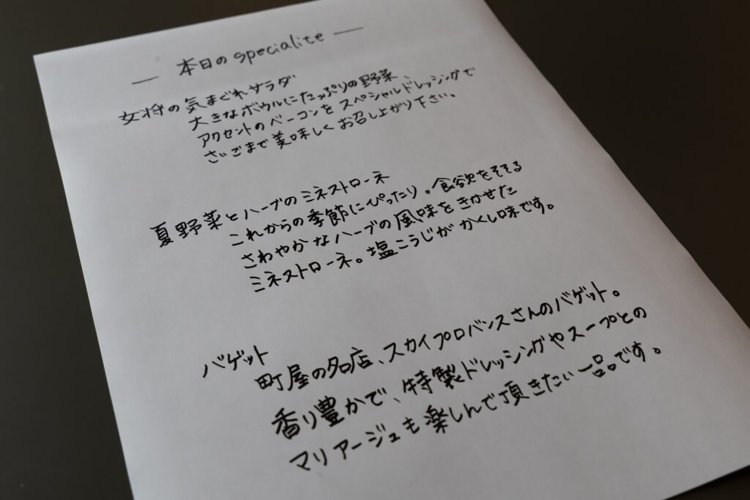 — 本日のspecialite —
女将の気まぐれサラダ
大きなボウルにたっぷりの野菜、
アクセントのベーコンをスペシャルドレッシングで
さいごまで美味しくお召し上がり下さい。
夏野菜とハーブのミネストローネ
これからの季節にぴったり。食欲をそそる
さわやかなハーブの風味をきかせた
ミネストローネ。塩こうじがかくし味です。
バゲット
町屋の名店、スカイプロバンスさんのバゲット。
香り豊かで、特製ドレッシングやスープとの
マリアージュも楽しんで頂きたい一品です。